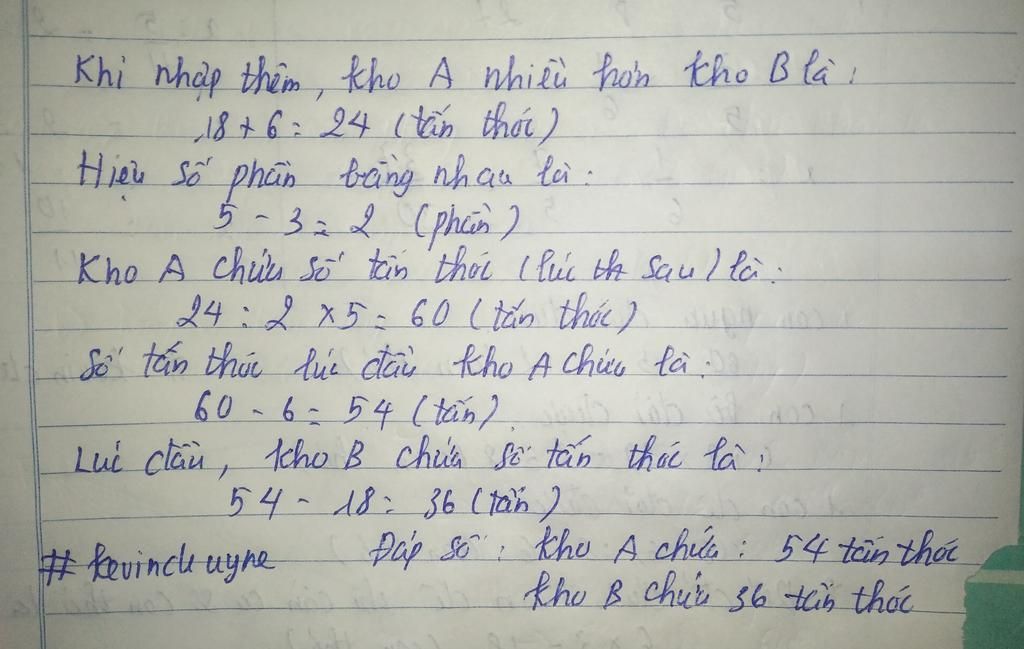 Khi nhập thêm, kho A nhiều hơn kho B là:
18 + 6 = 24 (tấn thóc)
Hiệu số phần bằng nhau là:
5 - 3 = 2 (phần)
Kho A chứa số tấn thóc (lúc sau) là:
24 : 2 x 5 = 60 (tấn thóc)
Số tấn thóc lúc đầu kho A chứa là:
60 - 6 = 54 (tấn)
Lúc đầu, kho B chứa số tấn thóc là:
54 - 18 = 36 (tấn)
# kevinchuyne Đáp số: kho A chứa: 54 tấn thóc
kho B chứa 36 tấn thóc